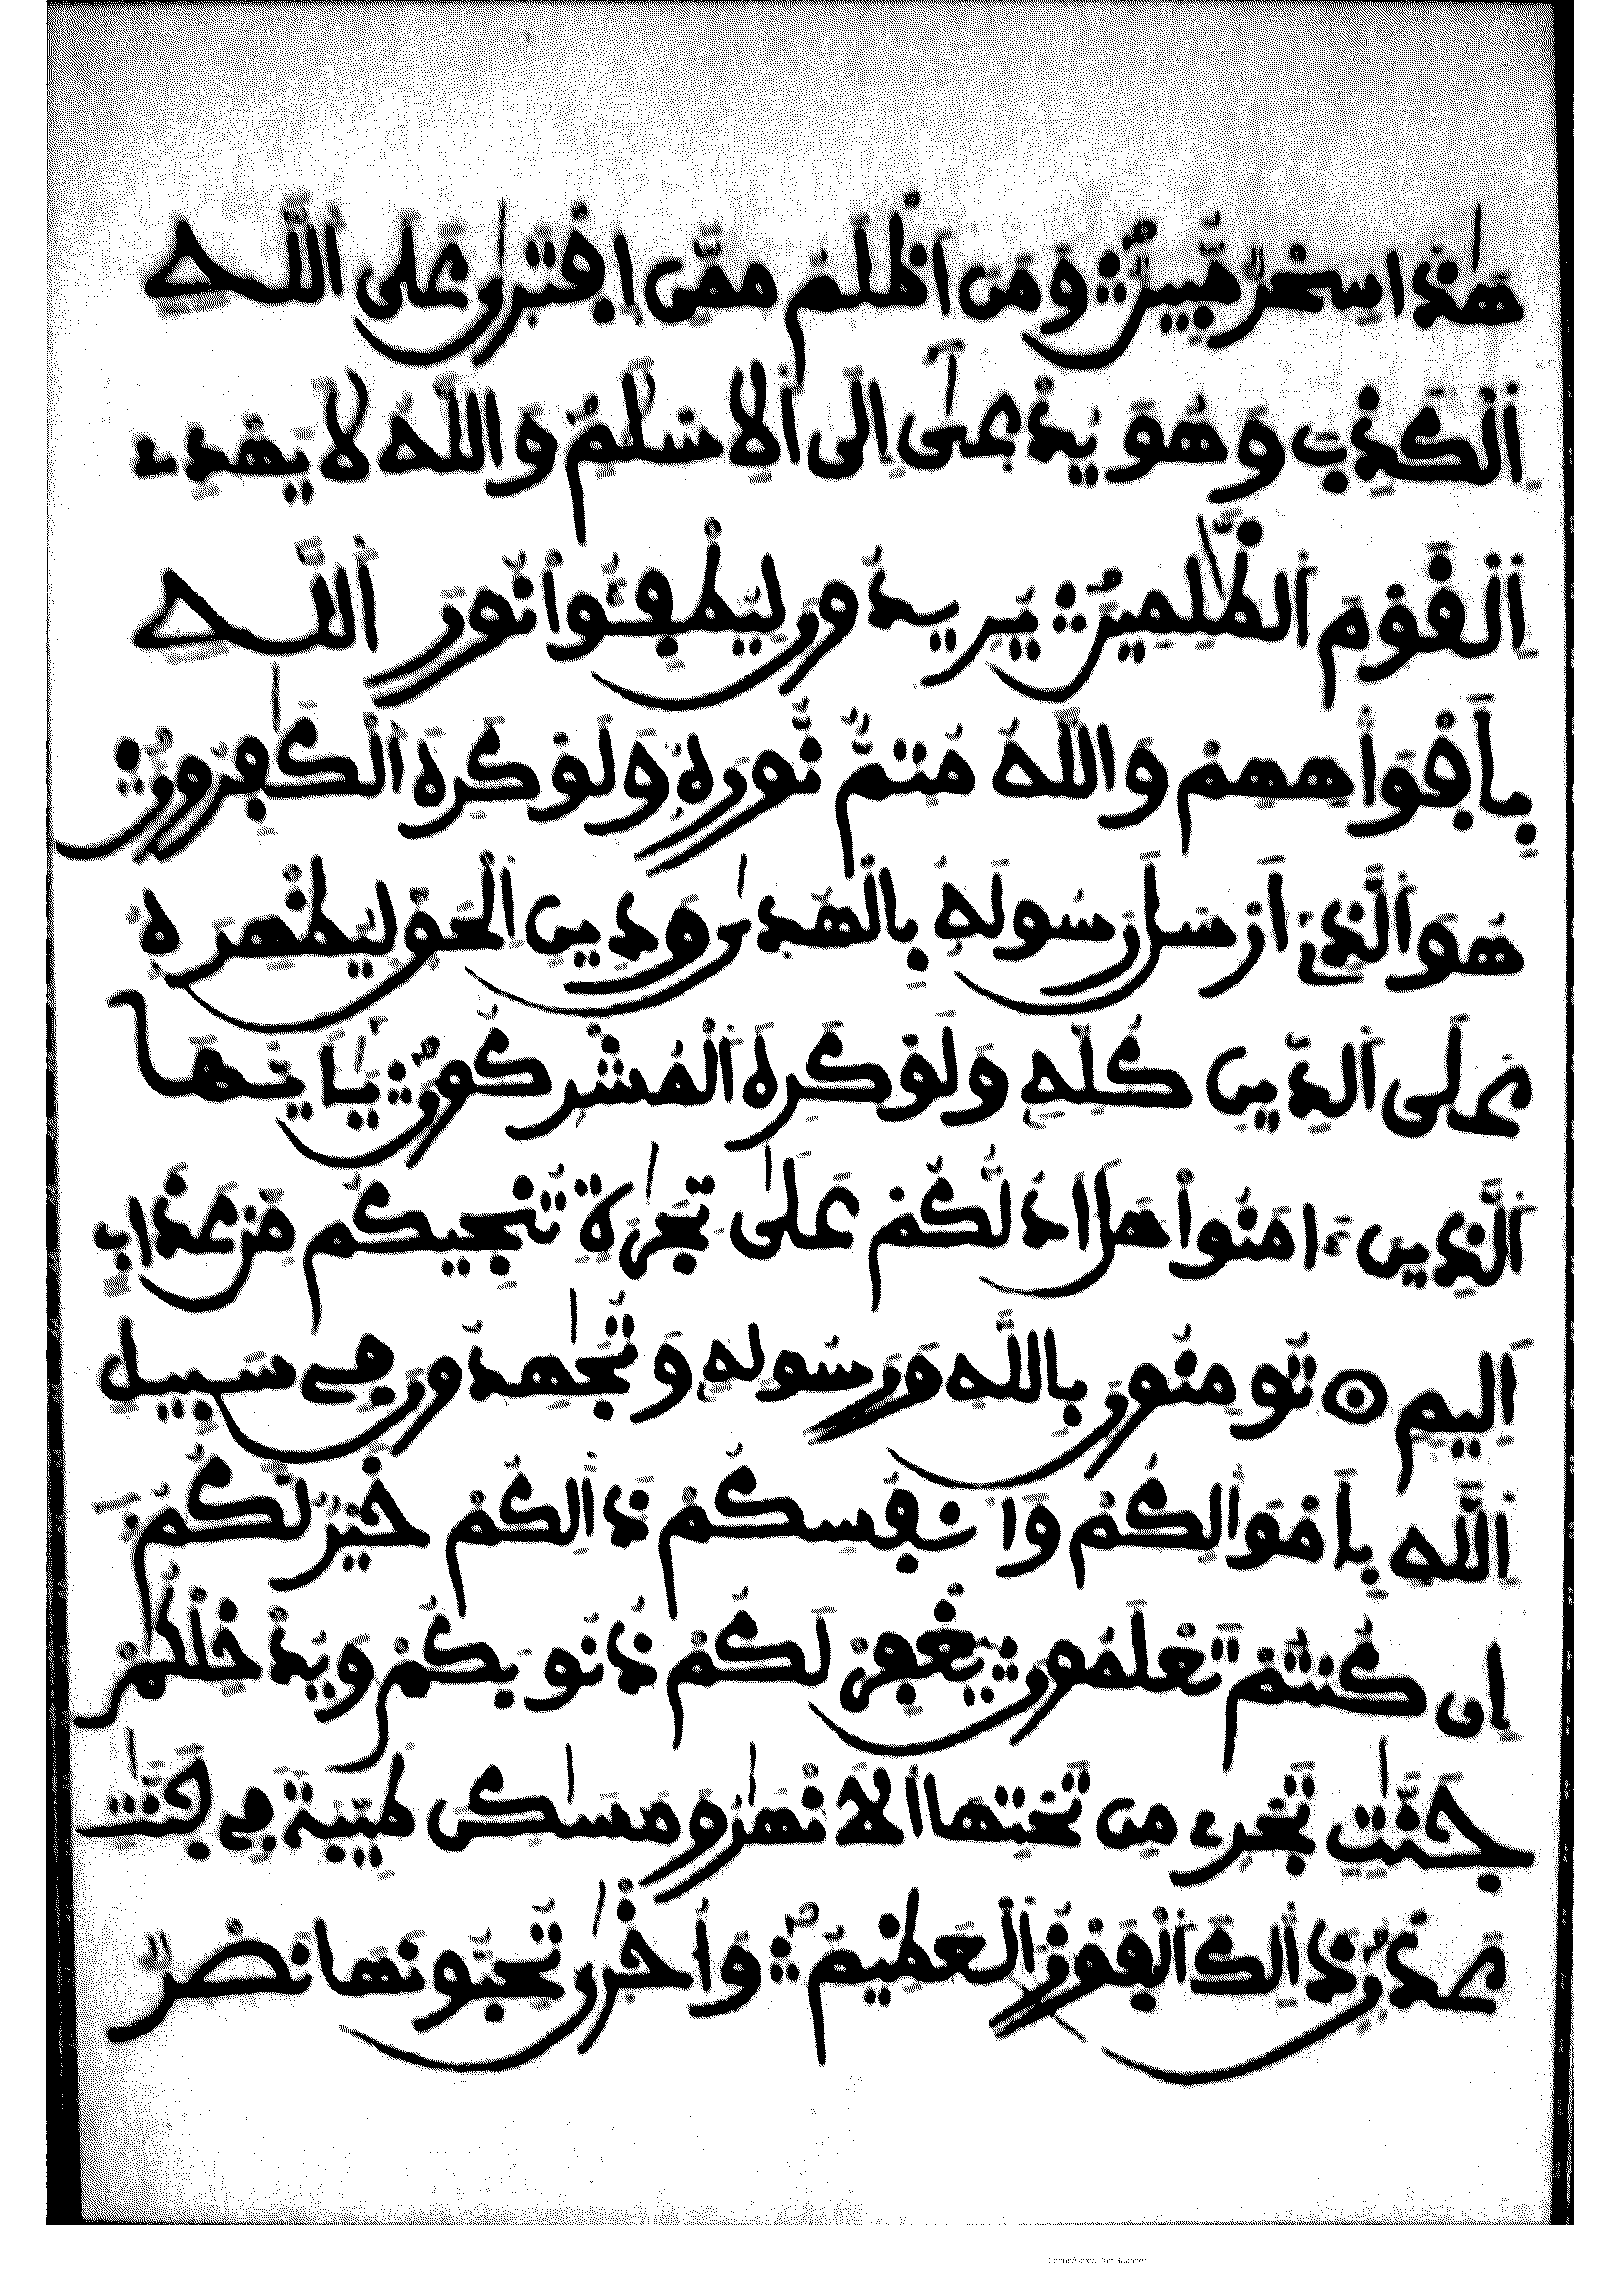 هَٰذَا سِحْرٌ مُّبِينٌ ۞ وَمَنَ اَظْلَمُ مِمَّنِ اِفْتَر۪يٰ عَلَى اَللَّهِ
اِ۬لْكَذِبَ وَهُوَ يُدْع۪يٰٓ إِلَى اَ۬لِاسْلَٰمِ وَاللَّهُ لَا يَهْدِے
اِ۬لْقَوْمَ اَ۬لظَّٰلِمِينَ ۞ يُرِيدُونَ لِيُطْفِـُٔواْ نُورَ اَ۬للَّهِ
بِأَفْوَٰهِهِمْ وَاللَّهُ مُتِمٌّ نُّورَهُۥ وَلَوْ كَرِهَ اَ۬لْكَٰفِرُونَ ۞
هُوَ اَ۬لذِےٓ أَرْسَلَ رَسُولَهُۥ بِالْهُد۪يٰ وَدِينِ اِ۬لْحَقِّ لِيُظْهِرَهُۥ
عَلَى اَ۬لدِّينِ كُلِّهِۦ وَلَوْ كَرِهَ اَ۬لْمُشْرِكُونَ ۞ يَٰٓأَيُّهَا
اَ۬لذِينَ ءَامَنُواْ هَلَ اَدُلُّكُمْ عَلَىٰ تِجَٰرَةٖ تُنجِيكُم مِّنْ عَذَابٍ
اَلِيمٖ ۞ تُومِنُونَ بِاللَّهِ وَرَسُولِهِۦ وَتُجَٰهِدُونَ فِے سَبِيلِ
اِ۬للَّهِ بِأَمْوَٰلِكُمْ وَأَنفُسِكُمْ ذَٰلِكُمْ خَيْرٞ لَّكُمُۥٓ
إِن كُنتُمْ تَعْلَمُونَ ۞ يَغْفِرْ لَكُمْ ذُنُوبَكُمْ وَيُدْخِلْكُمْ
جَنَّٰتٖ تَجْرِے مِن تَحْتِهَا اَ۬لَانْهَٰرُ وَمَسَٰكِنَ طَيِّبَةٗ فِے جَنَّٰتِ
عَدْنٖ ذَٰلِكَ اَ۬لْفَوْزُ اَ۬لْعَظِيمُ ۞ وَأُخْر۪يٰ تُحِبُّونَهَا نَصْرٞ